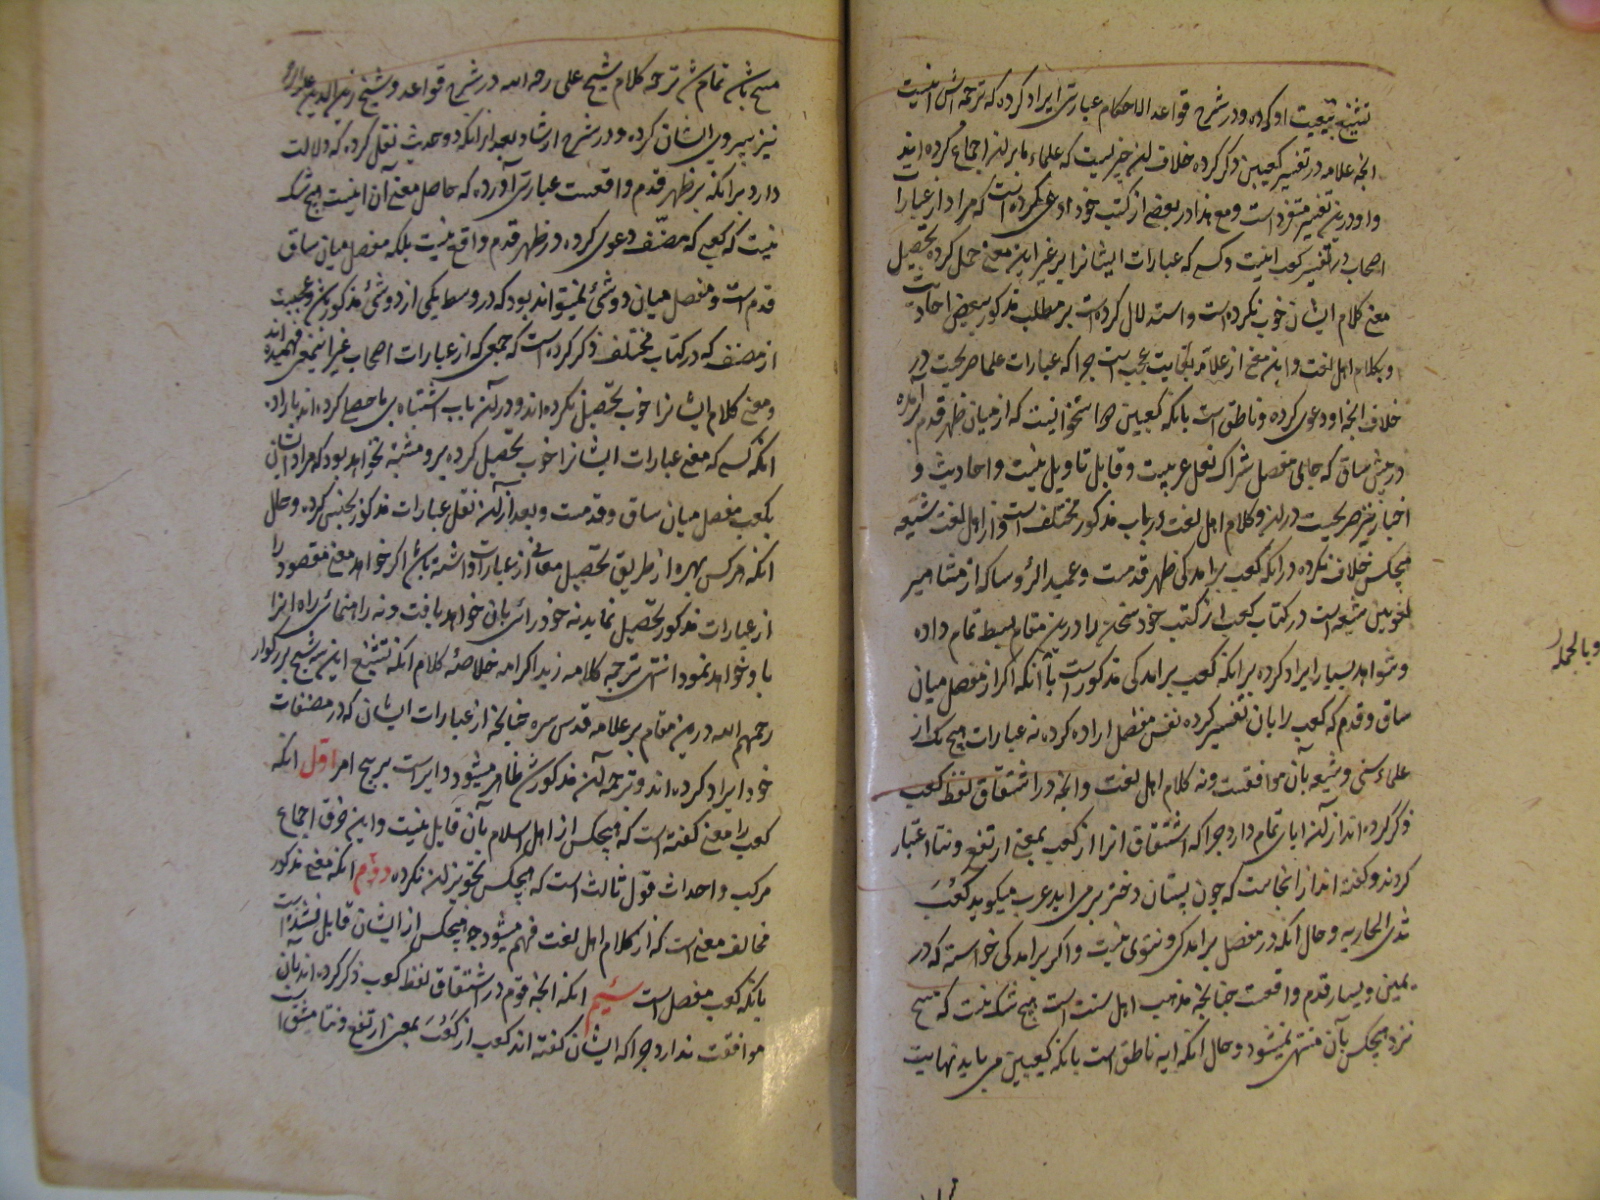 تشنیع بتبعیت او کرده و در شرح قواعد الاحکام عبارتی ایراد کرده که ترجمه‌اش اینست
آنچه علامه در تفسیر کعبین ذکر کرده خلاف این چیزیست که علماء ما بر این اجماع کرده‌اند
و او در این تفسیر متفرد است و مع هذا در بعضی از کتب خود ادعی کرده است که مراد از عبارات
اصحاب در تفسیر کعب اینست و کسی که عبارات ایشانرا بر غیر این معنی حمل کرده تحصیل
معنی کلام ایشان خوب نکرده است و استدلال کرده است بر مطلب مذکور ببعض احادیث
و بکلام اهل لغت و این معنی از علامه بغایت عجب است چرا که عبارات علما صریحست در
خلاف آنچه او دعوی کرده و ناطق است بانکه کعبین دو استخوانیست که از میان ظهر قدم برآمده
در پیش ساق که جای مفصل شراک نعل عربیست و قابل تاویل نیست و احادیث و
اخبار نیز صریحست در این و کلام اهل لغت در باب مذکور مختلف است و از اهل لغت شیعه
هیچکس خلاف نکرده در آنکه کعب برآمدکی ظهر قدمست و عمید الرؤسا که از مشاهیر
لغویین شیعه است در کتاب کعب از کتب خود سخن را در این مقام بسط تمام داده
و شواهد بسیار ایراد کرده بر آنکه کعب برآمدکی مذکور است با آنکه اکر از مفصل میان
ساق و قدم که کعب را بان تفسیر کرده نفس مفصل اراده کرده نه عبارات هیچ یک از
علماء سنی و شیعه بآن موافقست و نه کلام اهل لغت و آنچه در اشتقاق لفظ کعب
ذکر کرده‌اند از آن ابای تمام دارد چرا که اشتقاق انرا از کعب بمعنی ارتفع و نتا اعتبار
کردند و کفته‌اند از انجاست که چون پستان دختر برمی‌آید عرب میکوید کعب
ثدی الجاریه و حال آنکه در مفصل برآمدکی و نتوی نیست و اکر برآمدکی خواسته که در
یمین و یسار قدم واقعست چنانچه مذهب اهل سنت است هیچ شک نیست که مسح
نزد هیچکس بآن منتهی نمیشود و حال آنکه آیه ناطق است بانکه کعبین می‌باید نهایت
وبالجمله
مسح باشد تمام شد ترجمه کلام شیخ علی رحمه الله در شرح قواعد و شیخ زین الدین
نیز پیروی ایشان کرده و در شرح ارشاد بعد از آنکه دو حدیث نقل کرده که دلالت
دارد بر آنکه بر ظهر قدم واقعست عبارتی آورده که حاصل معنی آن اینست هیچ شک
نیست که کعبی که مصنف دعوی کرده در ظهر قدم واقع نیست بلکه مفصل میان ساق
قدم است و مفصل میان دو شئ نمیتواند بود که در وسط یکی از دو شئ مذکورین و عجبست
از مصنف که در کتاب مختلف ذکر کرده است که جمعی که از عبارات اصحاب غیر اینمعنی فهمیده‌اند
و معنی کلام ایشانرا خوب تحصیل نکرده‌اند و در آن باب اشتباه بی‌ماحصلی کرده‌اند باراده
انکه کسی که معنی عبارات ایشانرا خوب تحصیل کرده بر و مشتبه نخواهد بود که مراد ایشان
بکعب مفصل میان ساق و قدمست و بعد از آن نقل عبارات مذکور بجنس کرده و حال
انکه هر کس بهره از طریق تحصیل معانی از عبارات داشته باشد اکر خواهد معنی مقصود را
از عبارات مذکور تحصیل نماید نه خود رائی بانی خواهد یافت و نه راهنمائی راه انرا
باو خواهد نمود انتهی ترجمة کلامه زید اکرامه خلاصهٔ کلام آنکه تشنیع این سه شیخ بزرکوار
رحمهم الله در این مقام بر علامه قدس سره چنانچه از عبارات ایشان که در مصنفات
خود ایراد کرده‌اند و ترجمه آن مذکور شد ظاهر میشود دایر است بر پنج امر اول انکه
کعب را معنی کفته است که هیچکس از اهل اسلام بآن قایل نیست و این خرق اجماع
مرکب و احداث قول ثالث است که هیچکس تجویز آن نکرده دویم انکه معنی مذکور
مخالف معنی است که از کلام اهل لغت فهم میشود چه هیچکس از ایشان قایل نشده است
بانکه کعب مفصل است سیم انکه آنچه قوم در اشتقاق لفظ کعب ذکر کرده‌اند بآن
موافقت ندارد چرا که ایشان کفته‌اند کعب از کعب بمعنی ارتفع و نتا مشتق است